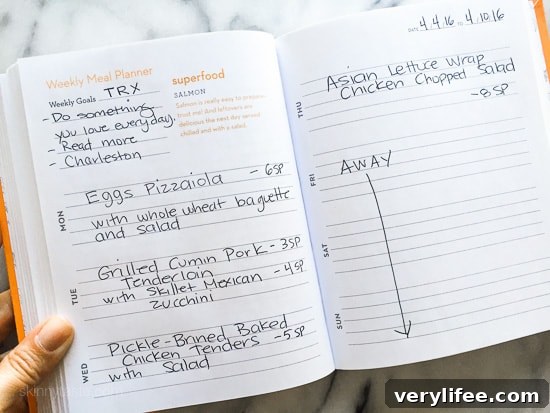 Weekly Meal Planner
Weekly Goals TRX
- Do something
you love everyday.
- Read more
- Charleston
superfood
SALMON
Salmon is really easy to prepare,
trust me! And leftovers are
delicious the next day served
chilled and with a salad.
MON
Eggs Pizzaiola - 6sp
with whole wheat baguette
and salad
TUE
Grilled Cumin Pork - 3sp
Tenderloin
with Skillet Mexican - 4sp
Zucchini
WED
Pickle-Brined Baked
Chicken Tenders - 5sp
with Salad
4.4.16 to 4.10.16
THU
Asian Lettuce Wrap
Chicken Chopped Salad
- 8sp
FRI
AWAY
SAT
SUN
verylifee.com